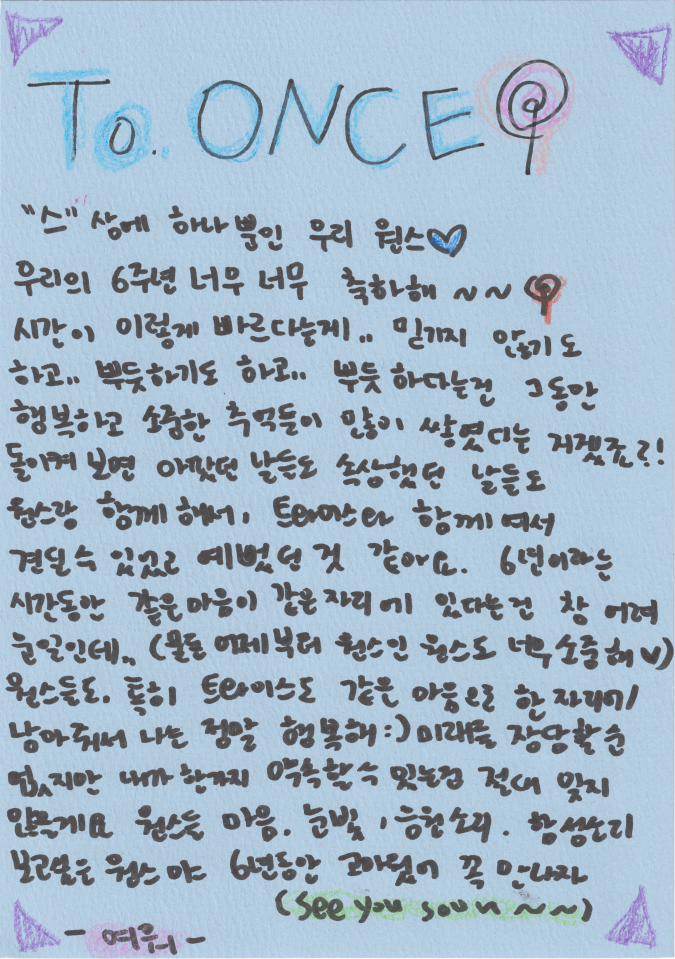 To. ONCE
"스"상에 하나 뿐인 우리 원스
우리의 6주년 너무 너무 축하해 ~ ~
시간이 이렇게 빠르다는게.. 믿기지 않기도
하고.. 뿌듯하기도 하고.. 뿌듯하다는건 그동안
행복하고 소중한 추억들이 많이 쌓였다는 거겠죠?!
돌이켜 보면 아팠던 날들도 속상했던 날들도
원스랑 함께 해서, 트와이스와 함께여서
견딜 수 있었고 예뻤던 것 같아요. 6년이라는
시간동안 같은 마음이 같은 자리에 있다는건 참 어려
운일인데.. (물론 어제부터 원스인 원스도 너무 소중해)
원스들도. 특히 트와이스도 같은 마음으로 한 자리에
남아줘서 나는 정말 행복해 :) 미래를 장담할 순
없지만 내가 한가지 약속할 수 있는건 절대 잊지
않을게요 원스들 마음. 눈빛, 응원소리. 함성소리
보고싶은 원스야 6년동안 고마웠어 꼭 만나자
(see you soon ~ ~ ~)
- 여뤄 -